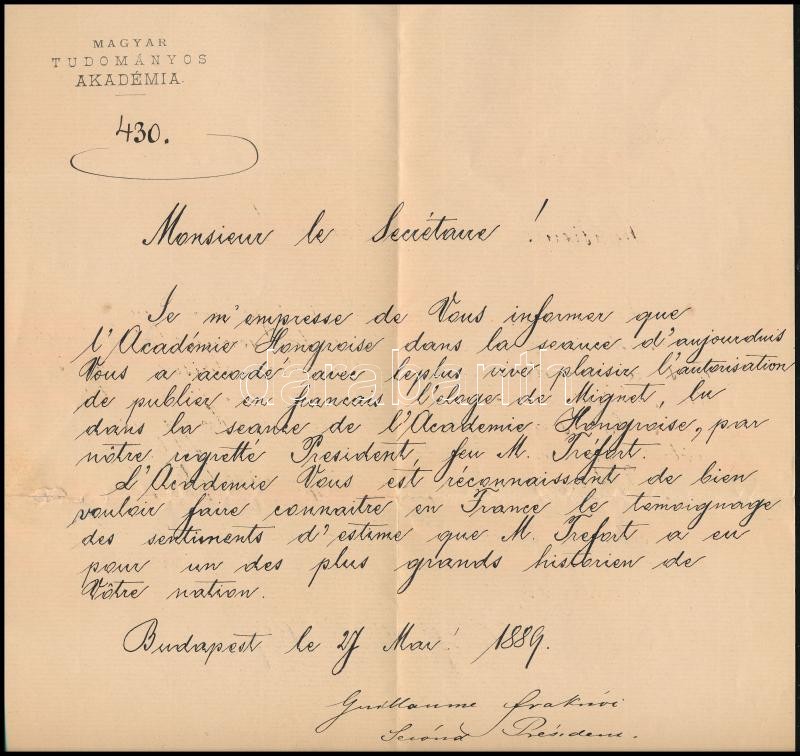 MAGYAR
TUDOMÁNYOS
AKADÉMIA.
430.
Monsieur le Secrétaire !
Je m'empresse de Vous informer que
l'Académie Hongroise dans la seance d'aujourduis
Vous a accodé avec leplus vive plaisir, l'autorisation
de publier en francais l'éloge de Mignet, lu
dans la seance de l'Academie Hongroise, par
nôtre regretté President, feu M. Trefort.
L'Academie Vous est réconnaissant de bien
vouloir faire connaitre en France le temoignage
des sentiments d'estime que M. Trefort a eu
pour un des plus grands historien de
Vôtre nation.
Budapest le 27 Mai 1889.
Guillaume Fraknói
Second Président.
darabanth.com